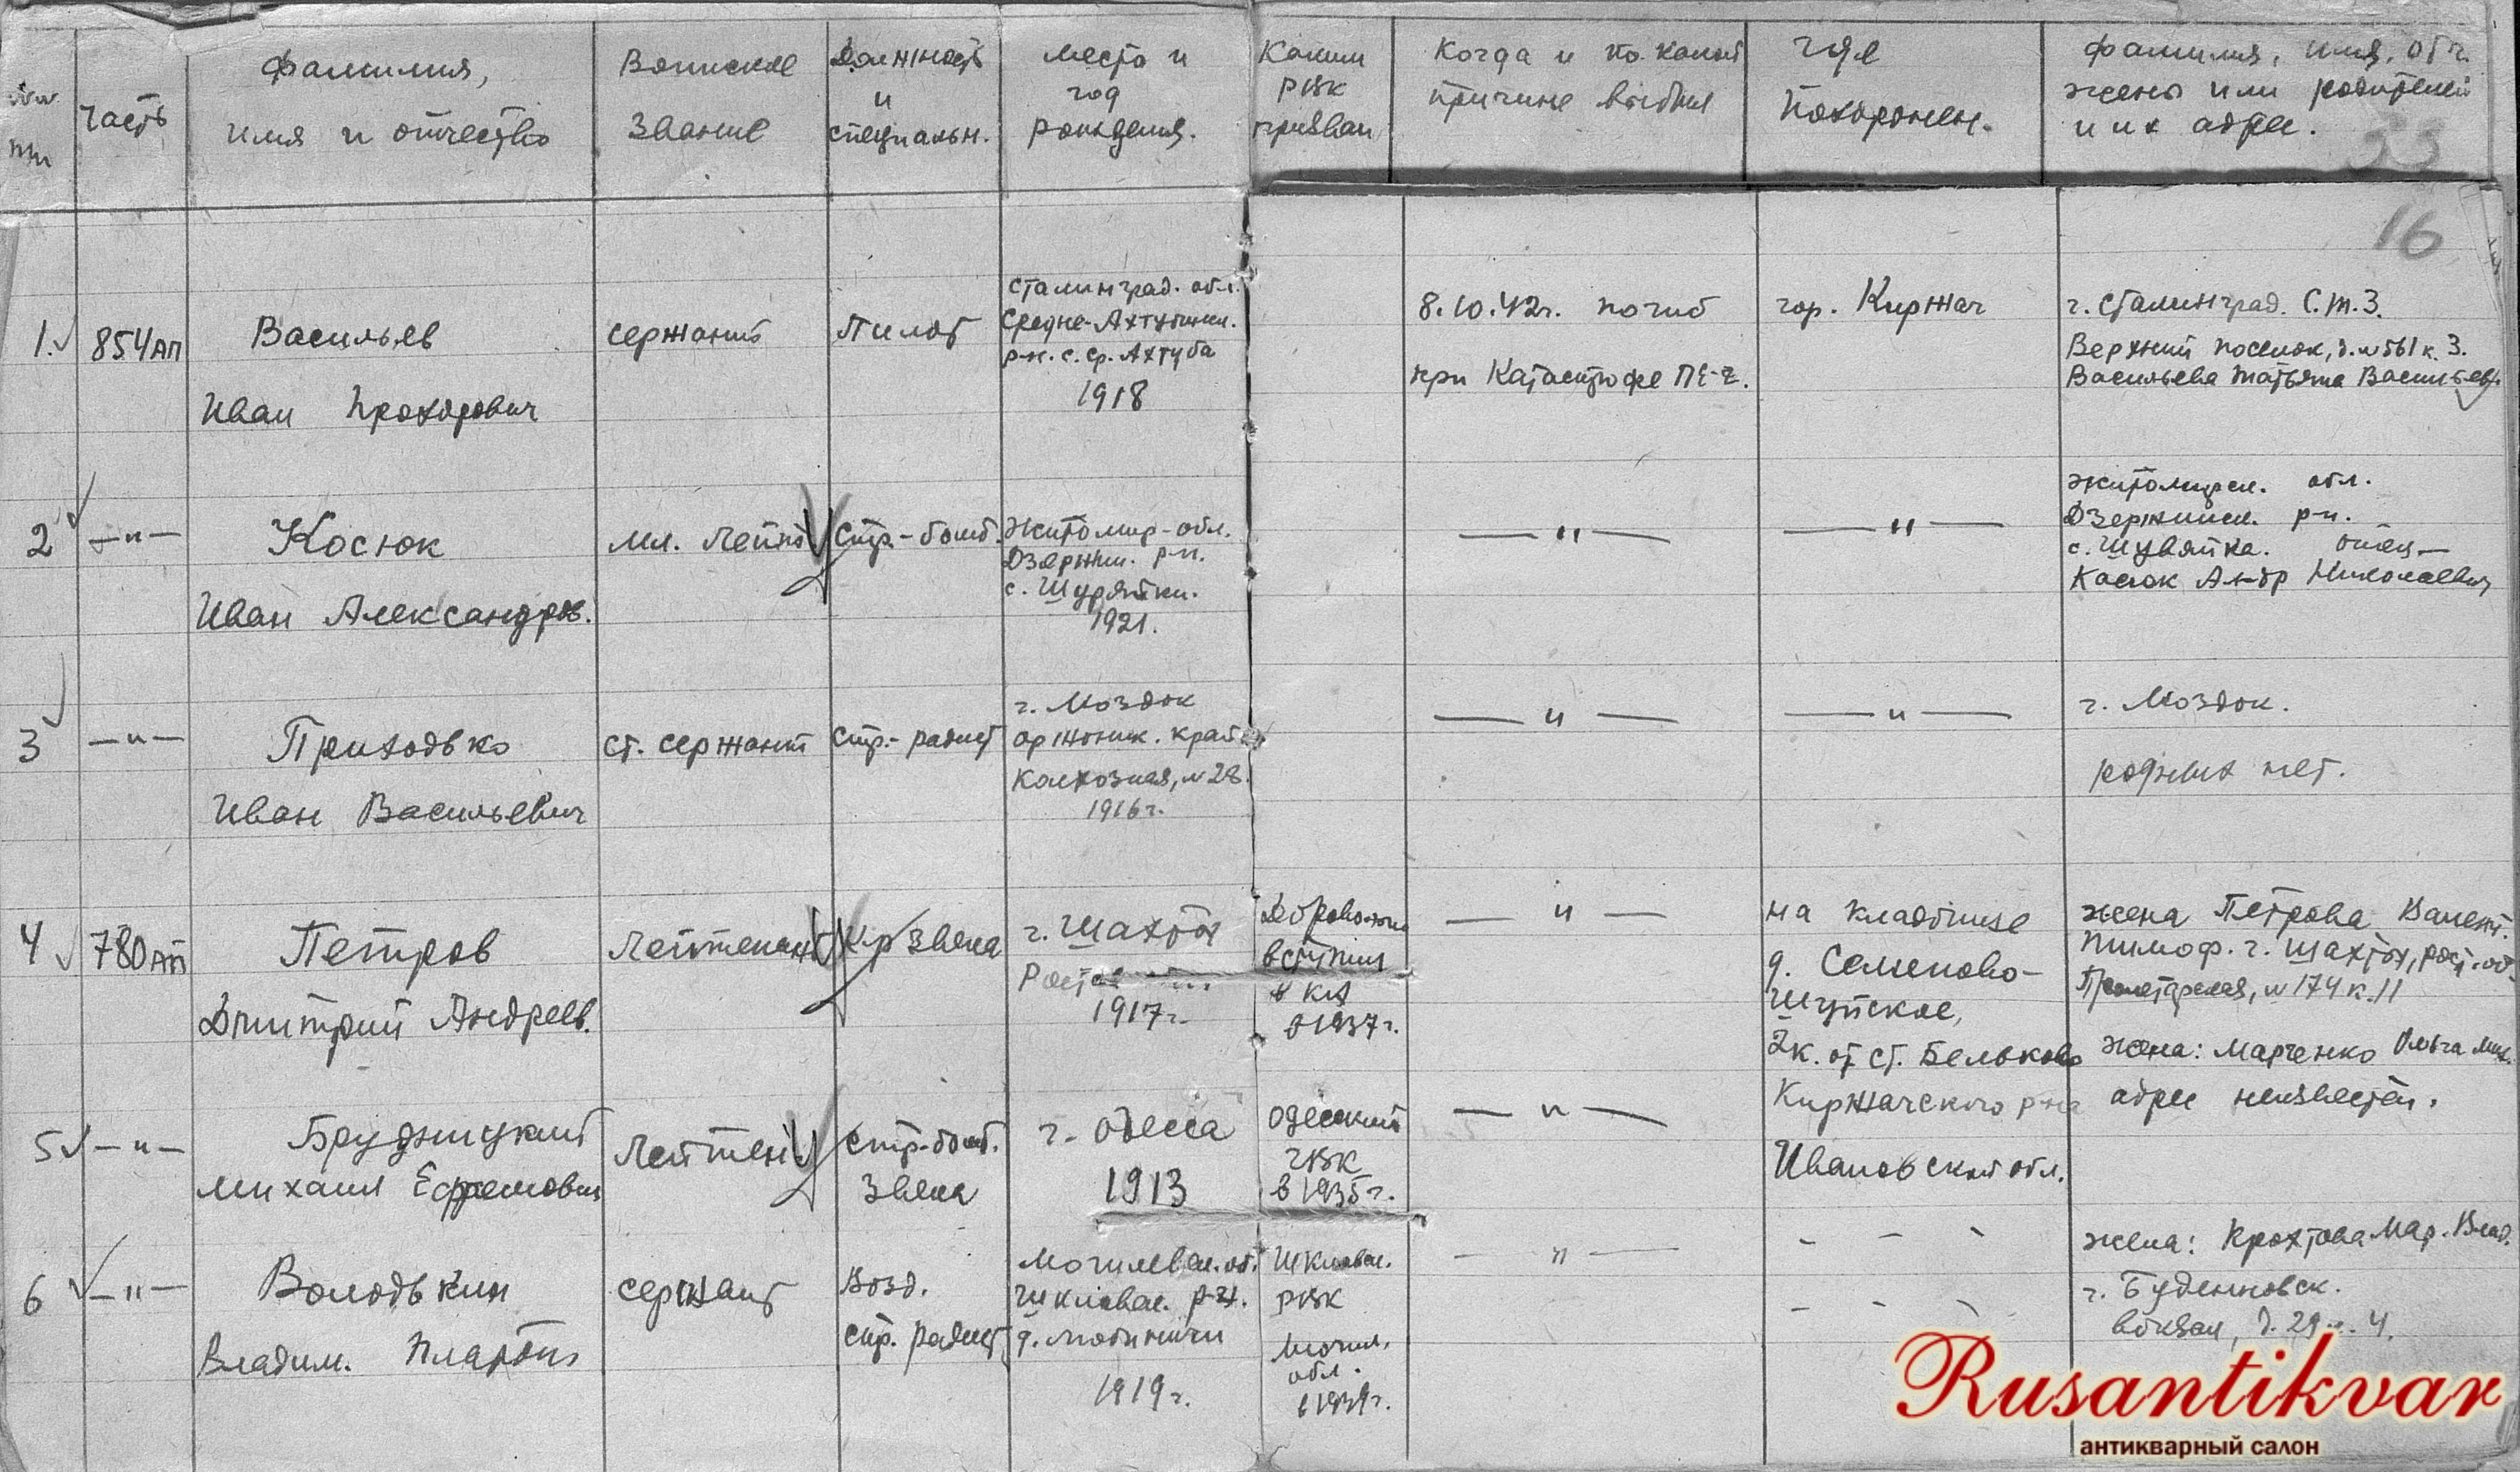 №№ пп
часть
фамилия,
имя и отчество
Воинское
звание
Должность
и
специальн.
место и
год
рождения.
Каким
РВК
призван
Когда и по какой
причине выбыл
где
похоронен.
фамилия, имя, отч.
жены или родителей
и их адрес.
33
16
1.
854 АП
Васильев
Иван Прохорович
сержант
Пилот
Сталинград. обл.
Средне-Ахтубинск.
р-н. с. Ср. Ахтуба
1918
8.10.42г. погиб
при катастрофе ПЕ-2.
гор. Киржач
г. Сталинград. С.Т.З.
Верхний поселок, д. №561 к. 3.
Васильева Татьяна Васильев.
2
—"—
Косюк
Иван Александров.
мл. лейт
Стр.-бомб.
Житомир-обл.
Дзержин. р-н.
с. Шурятки.
1921.
—"—
—"—
Житомирск. обл.
Дзержинск. р-н.
с. Шувятка. отец—
Косюк Ал-др Николаевич
3
—"—
Приходько
Иван Васильевич
ст. сержант
Стр.-радист
г. Моздок
Орджоник. край
Колхозная, №28.
1916г.
—"—
—"—
г. Моздок.
родных нет.
4
780 АП
Петров
Дмитрий Андреев.
Лейтенант
К-р звена
г. Шахты
1917г.
Добровольно
вступил
в КА
в 1937г.
—"—
на кладбище
д. Семеново-
Шуйское,
2к. от ст. Бельково
Киржачского р-на
Ивановской обл.
жена Петрова Валент.
Тимоф. г. Шахты, рост. об
Пролетарская, №174 к. 11
5
—"—
Брудницкий
Михаил Ефремович
Лейтен
стр-бомб.
звена
г. Одесса
1913
Одесский
ГВК
в 1935г.
—"—
жена: Марченко Ольга Мих.
адрес неизвестен.
6
—"—
Володькин
Владим. Платон
сержант
Возд.
стр. радист
Могилевск. об.
Шкловск. р-н.
1919г.
Шкловск.
РВК
Могил.
обл.
в 1939г.
—"—
- - -
- - -
жена: Мар. Влад.
г. Буденновск.
вокзал, д. 29 к. 4.
Rusantikvar
антикварный салон